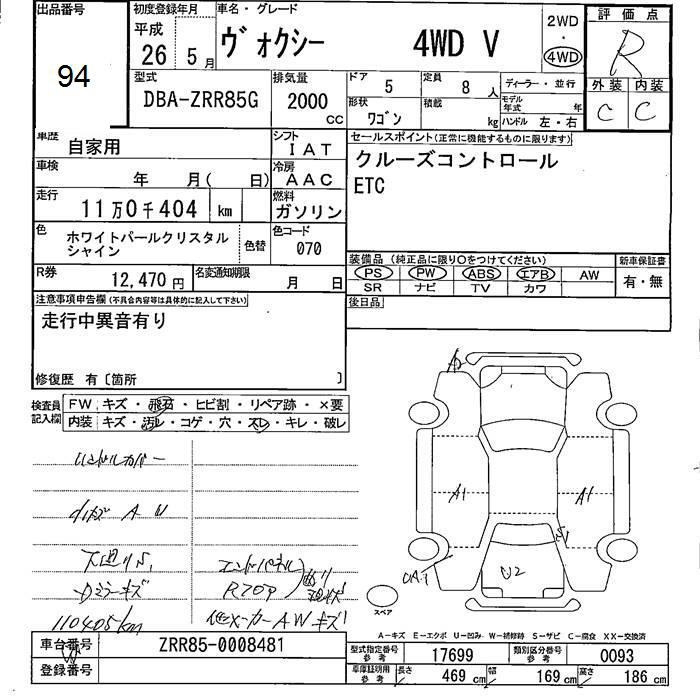 出品番号
94
初度登録年月
平成
26 5月
車名・グレード
ヴォクシー 4WD V
2WD
・
4WD
評価点
R
外装 内装
C C
型式
DBA-ZRR85G
排気量
2000
CC
ドア 5
定員 8 人
ディーラー・並行
形状 ワゴン
積載 kg
モデル年式 年
ハンドル 左・右
車歴 自家用
シフト IAT
車検 年 月( 日)
冷房 AAC
走行 11万0千404 km
燃料 ガソリン
色 ホワイトパールクリスタル
シャイン
色替
色コード 070
R券 12,470 円
名変通知期限 月 日
セールスポイント(正常に機能するものに限ります)
クルーズコントロール
ETC
装備品(純正品に限り○をつけてください)
新車保証書
PS PW ABS エアB AW
SR ナビ TV カワ
有・無
後日品
注意事項申告欄(不具合内容等は具体的に記入して下さい)
走行中異音有り
修復歴 有〔箇所 〕
検査員
記入欄
FW キズ・飛石・ヒビ割・リペア跡・×要
内装 キズ・汚レ・コゲ・穴・スレ・キレ・破レ
ハンドルカバー
下廻りS
エンドパネル
Dミラーキズ
Rフロア
110405km
他メーカーAWキズ
A1
A1
U2
スペア
A-キズ E-エクボ U-凹み W-補修跡 S-サビ C-腐食 XX-交換済
車台番号 ZRR85-0008481
登録番号
型式指定番号
参考
17699
類別区分番号
参考
0093
車庫証明用
参考
長さ 469 cm 幅 169 cm 高さ 186 cm